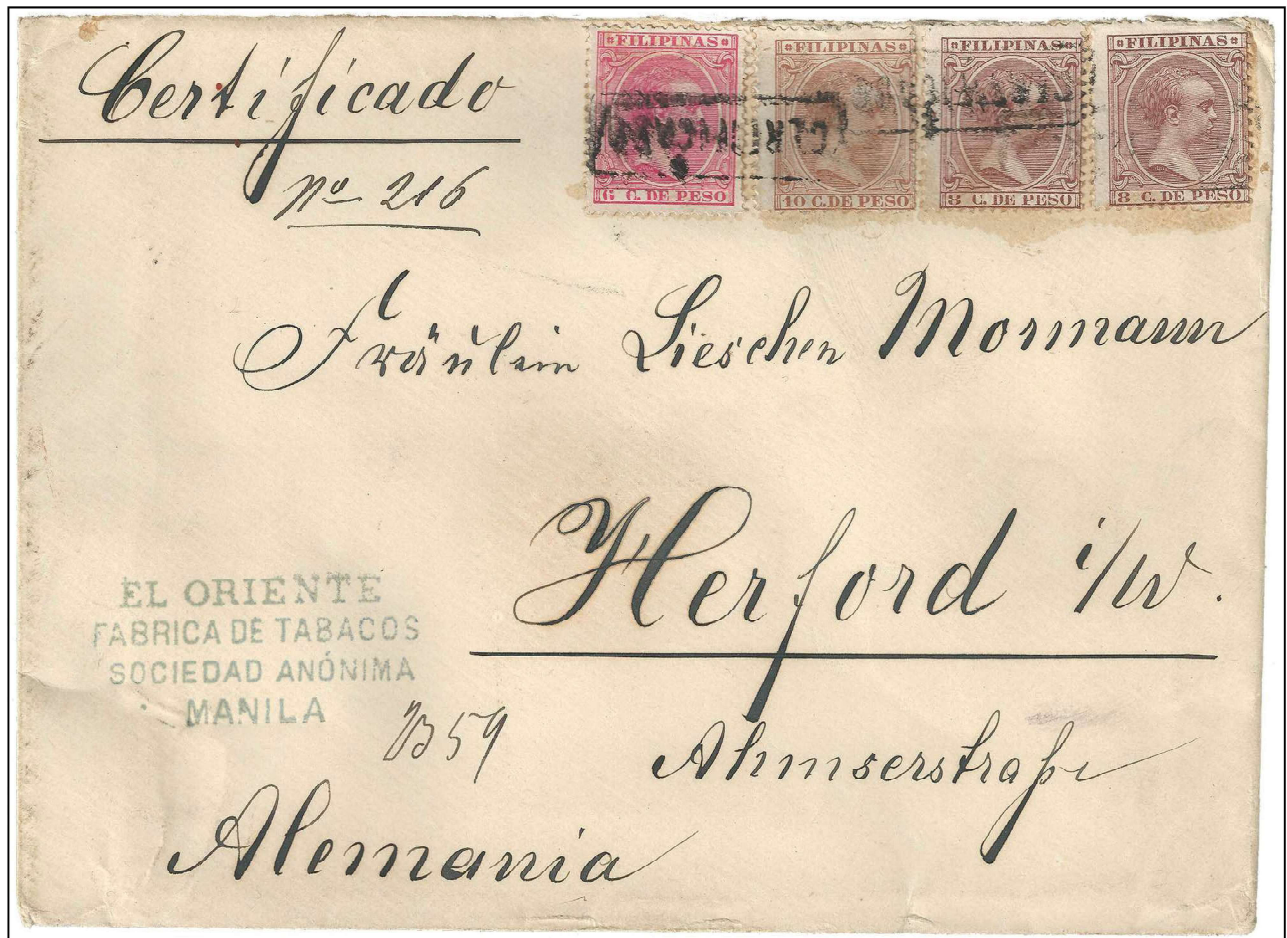 Certificado
No 216
FILIPINAS
6 C. DE PESO
FILIPINAS
10 C. DE PESO
FILIPINAS
8 C. DE PESO
FILIPINAS
8 C. DE PESO
CERTIFICADO
CERTIFICADO
Fräulein Lieschen Mormann
Herford i/W.
EL ORIENTE
FABRICA DE TABACOS
SOCIEDAD ANÓNIMA
MANILA
Ahmserstraße
Alemania